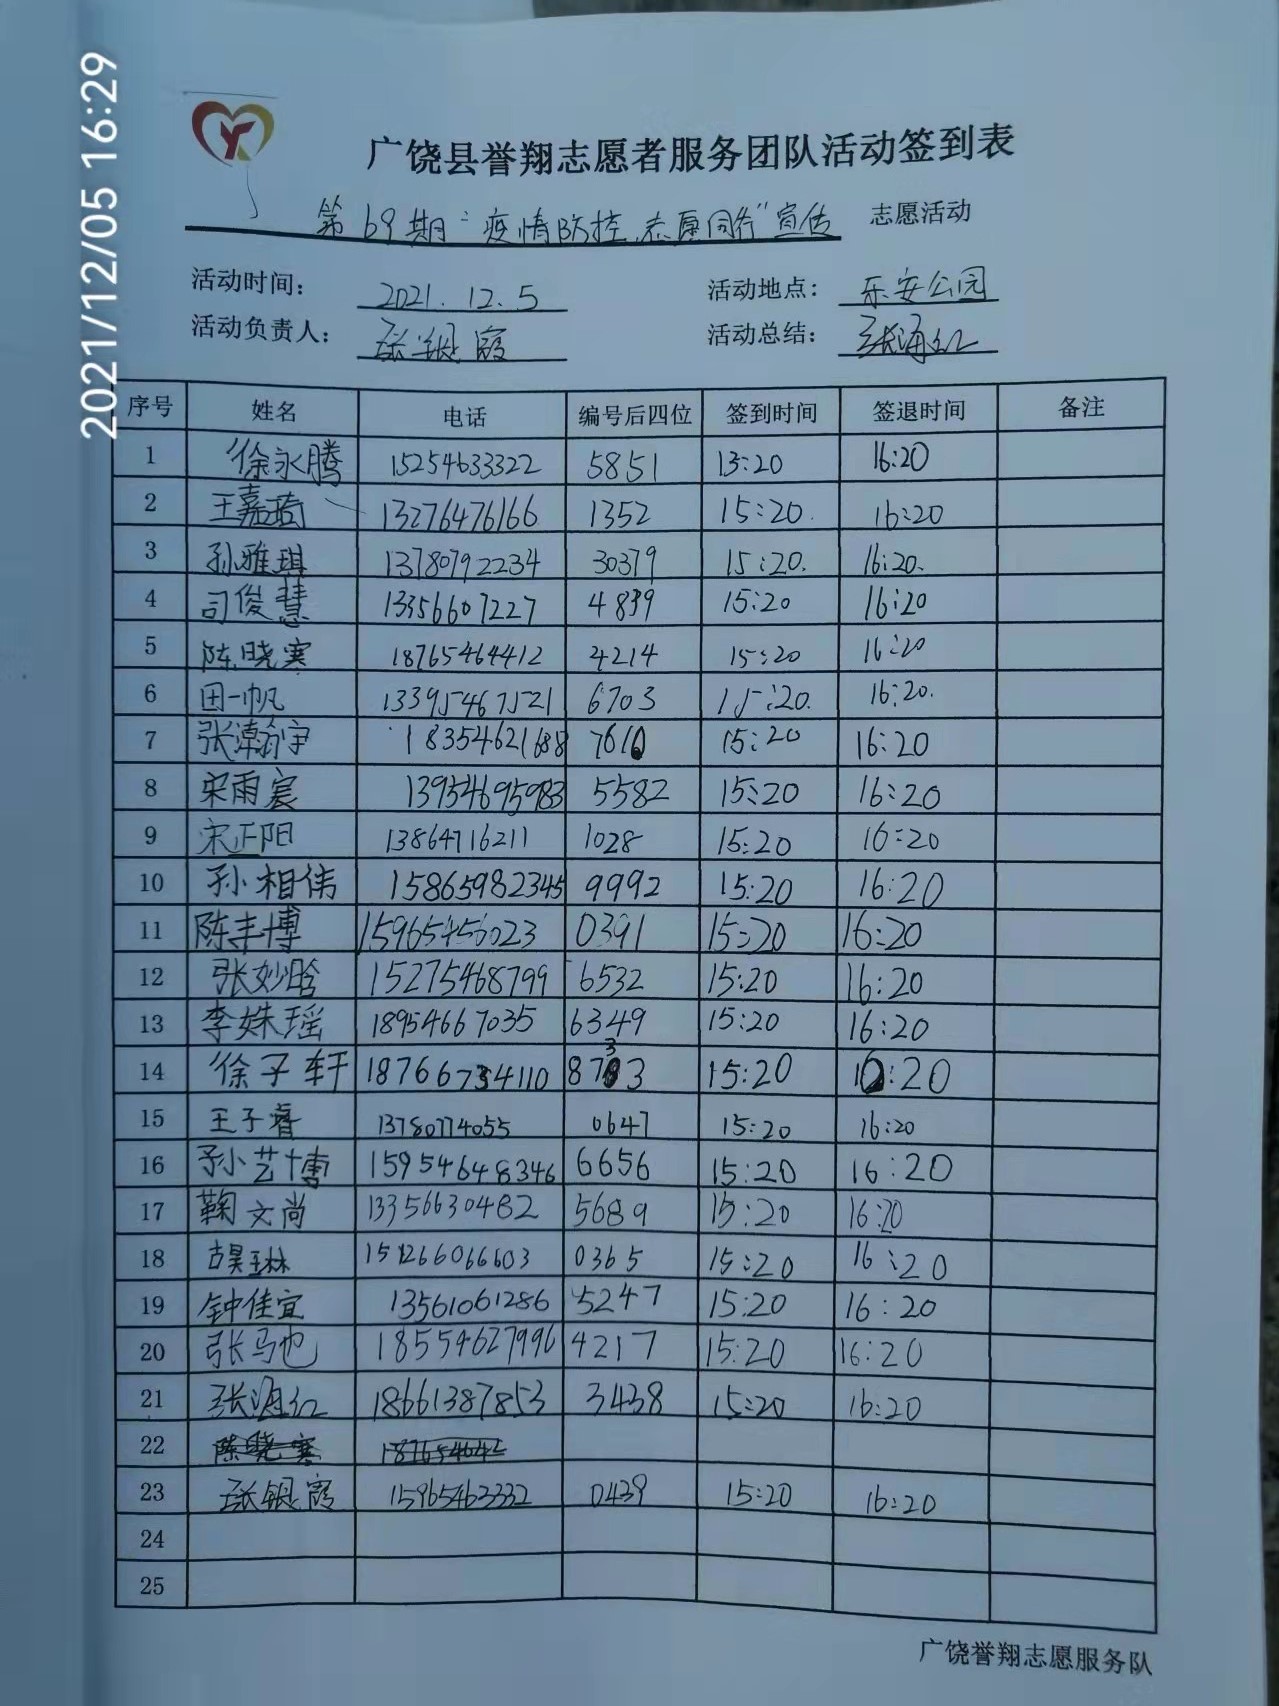 2021/12/05 16:29
广饶县誉翔志愿者服务团队活动签到表
第69期"疫情防控,志愿同行"宣传 志愿活动
活动时间: 2021.12.5 活动地点: 乐安公园
活动负责人: 张银霞 活动总结: 张海红
序号 姓名 电话 编号后四位 签到时间 签退时间 备注
1 徐永腾 15254633322 5851 13:20 16:20
2 王嘉琦 13276476166 1352 15:20. 16:20
3 孙雅琪 13780792234 30379 15:20. 16:20.
4 司俊慧 13356607227 4839 15:20 16:20
5 陈晓寒 18765464412 4214 15:20 16:20
6 田一帆 13395467521 6703 15:20. 16:20.
7 张瀚宇 18354621688 7610 15:20 16:20
8 宋雨宸 13954695983 5582 15:20 16:20
9 宋正阳 13864716211 1028 15:20 16:20
10 孙相伟 15865982345 9992 15:20 16:20
11 陈丰博 0391 15:20 16:20
12 张妙晗 15275468799 6532 15:20 16:20
13 李姝瑶 18954667035 6349 15:20 16:20
14 徐子轩 18766734110 15:20 :20
15 王子睿 13780774055 0647 15:20 16:20
16 孙艺博 15954648346 6656 15:20 16:20
17 鞠文尚 13356630482 5689 15:20 16:20
18 151266066603 0365 15:20 16:20
19 钟佳宜 13561061286 5247 15:20 16:20
20 张马也 18554627996 4217 15:20 16:20
21 张海红 18661387853 3438 15:20 16:20
22 陈晓寒
23 张银霞 15965463332 0439 15:20 16:20
24
25
广饶誉翔志愿服务队